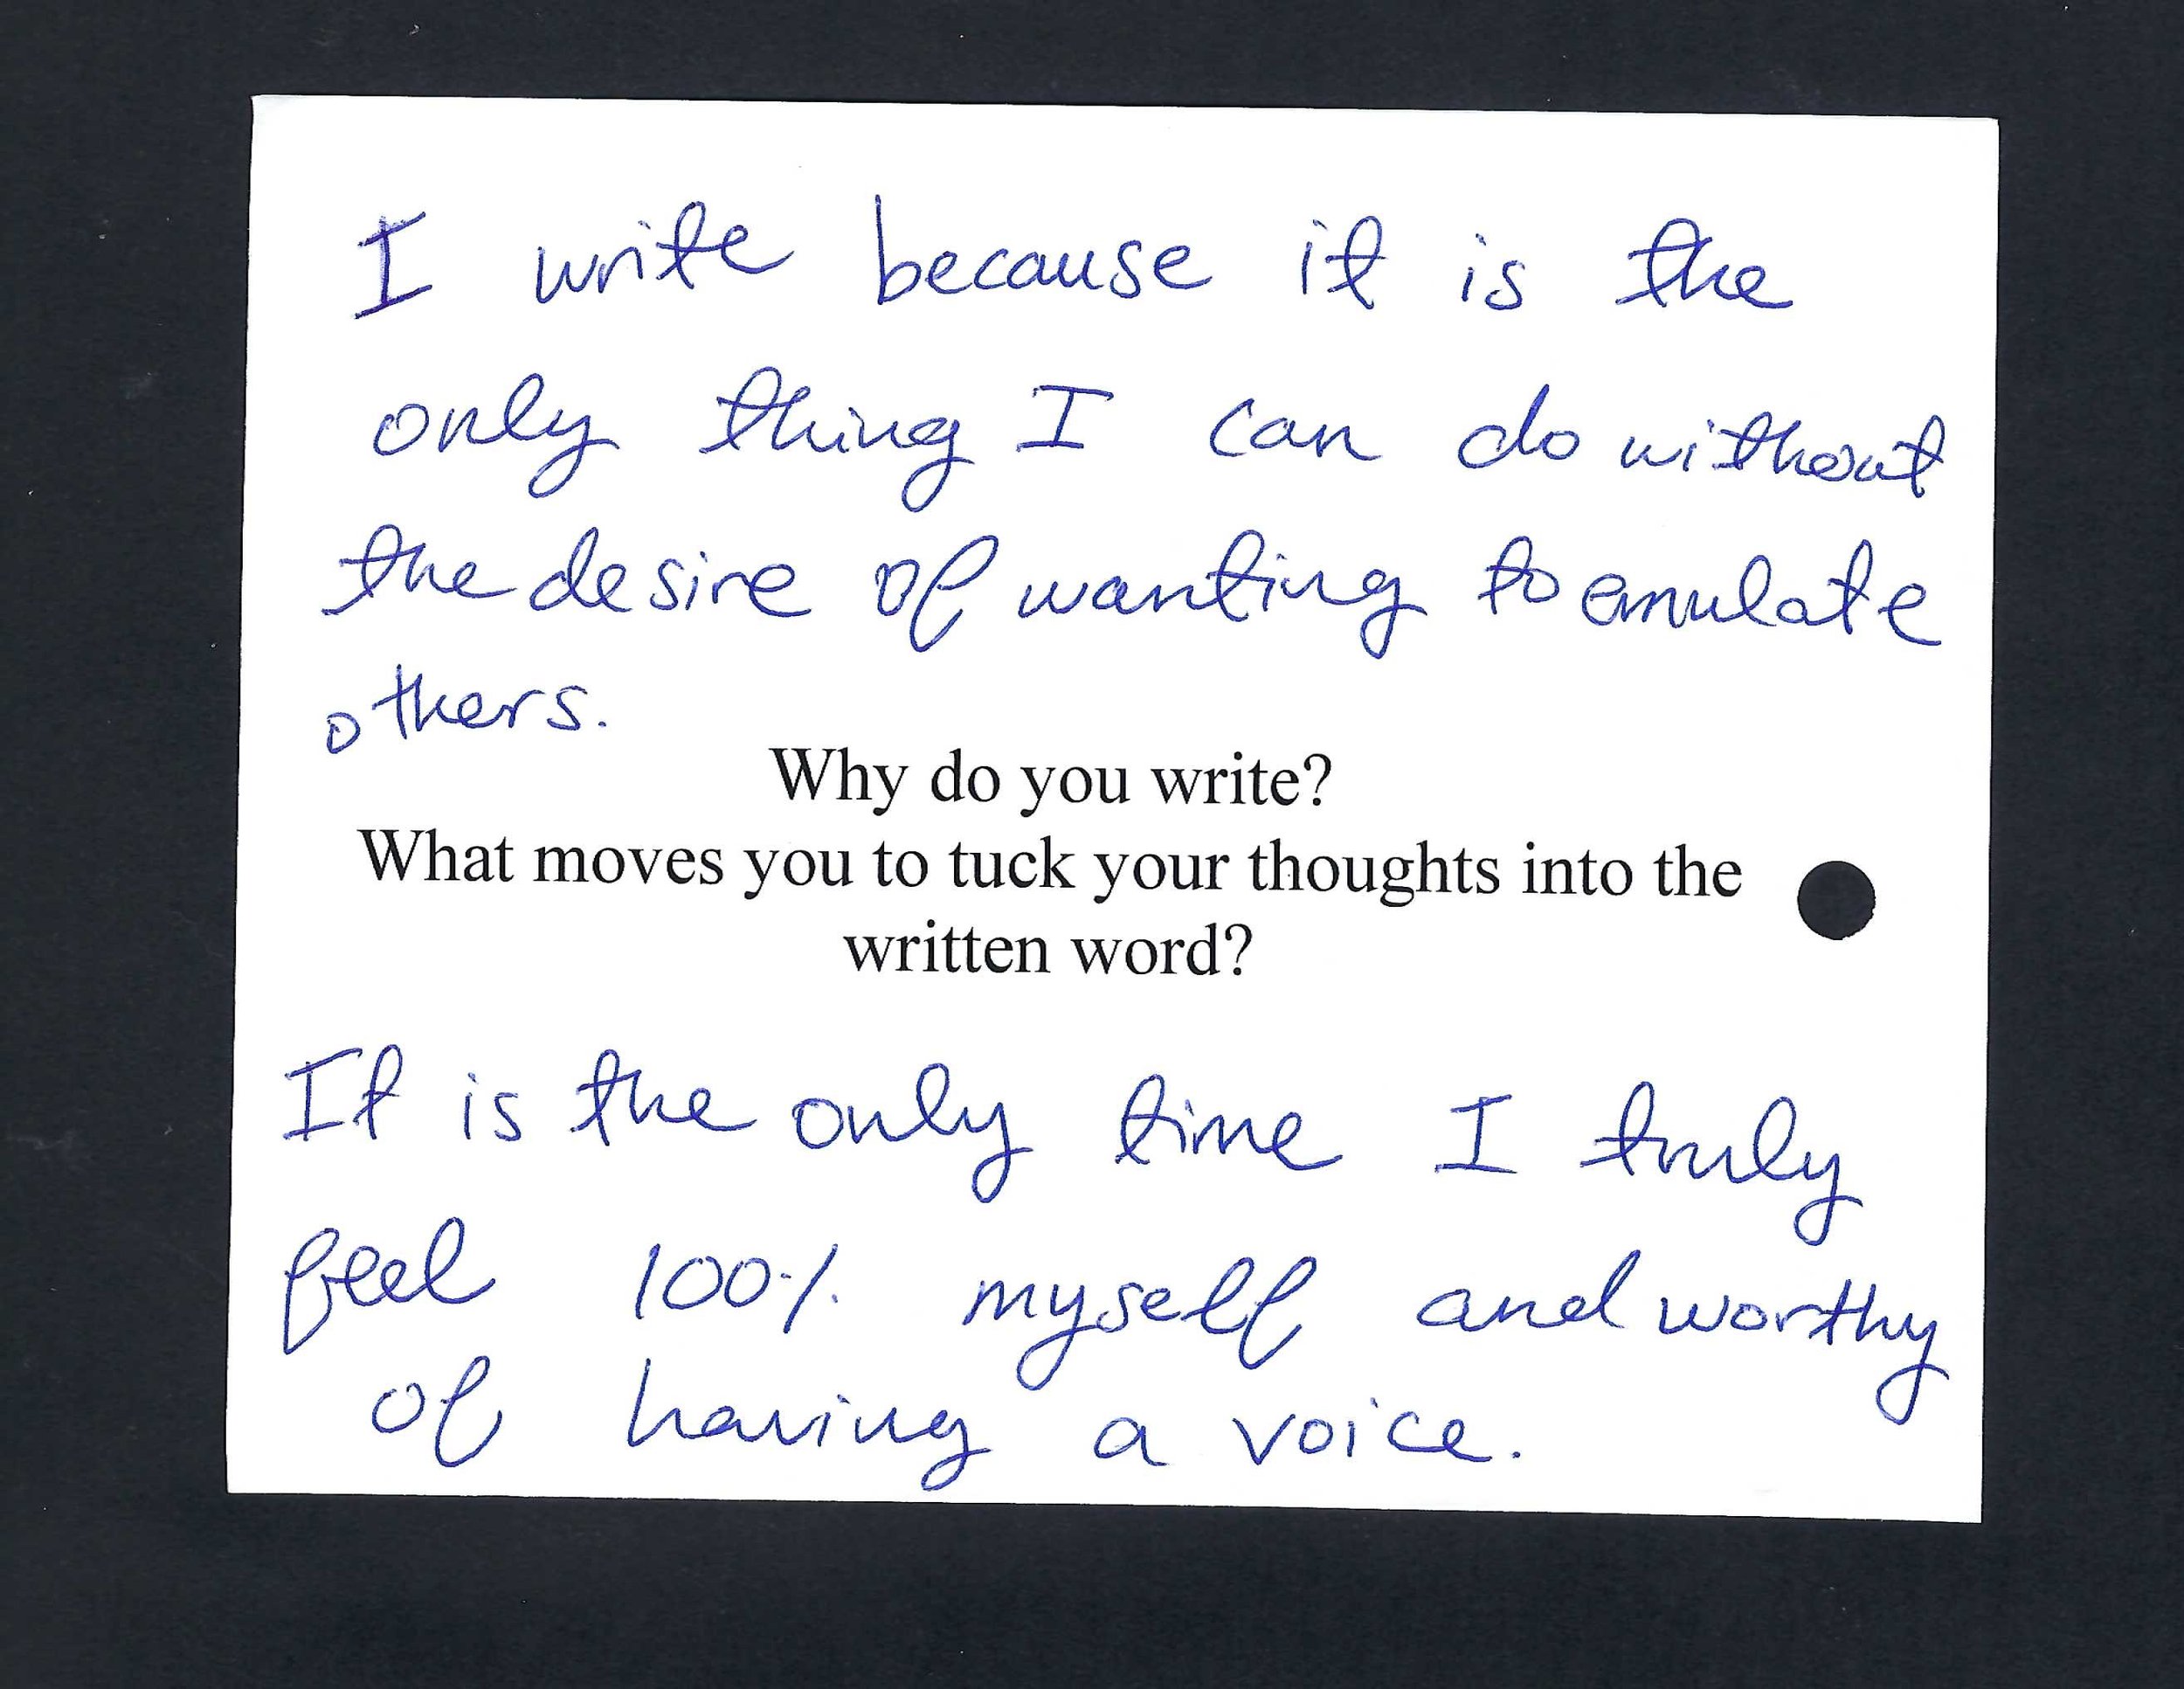 I write because it is the
only thing I can do without
the desire of wanting to emulate
others.
Why do you write?
What moves you to tuck your thoughts into the
written word?
It is the only time I truly
feel 100% myself and worthy
of having a voice.